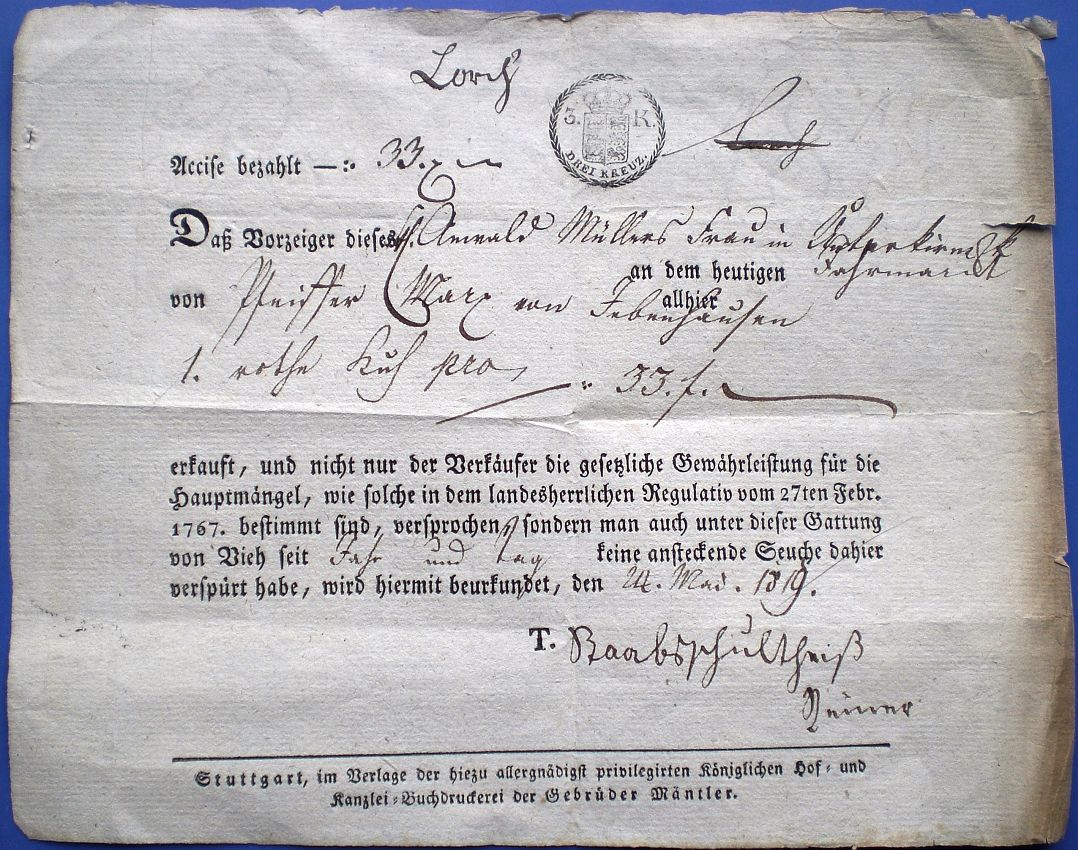 Lorch
3. K.
DREI KREUZ.
Lorch
Accise bezahlt —:. 33. x
Daß Vorzeiger dieses Anwald Müllers Frau in
an dem heutigen Jahrmarckt
von Pfeiffer Marx von Jebenhausen allhier
1. rothe Kuh pro 33. f.
erkauft, und nicht nur der Verkäufer die gesetzliche Gewährleistung für die
Hauptmängel, wie solche in dem landesherrlichen Regulativ vom 27ten Febr.
1767. bestimmt sind, versprochen, sondern man auch unter dieser Gattung
von Vieh seit Jahr und tag keine ansteckende Seuche dahier
verspürt habe, wird hiermit beurkundet, den 24. Mai. 1819.
T. Staabsschultheiß
Stuttgart, im Verlage der hiezu allergnädigst privilegirten Königlichen Hof- und
Kanzlei-Buchdruckerei der Gebrüder Mäntler.